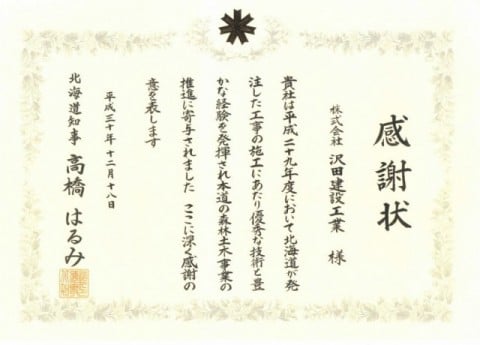 感謝状
株式会社 沢田建設工業 様
貴社は平成二十九年度において北海道が発
注した工事の施工にあたり優秀な技術と豊
かな経験を発揮され本道の森林土木事業の
推進に寄与されました ここに深く感謝の
意を表します
平成三十年十二月十八日
北海道知事 高橋はるみ